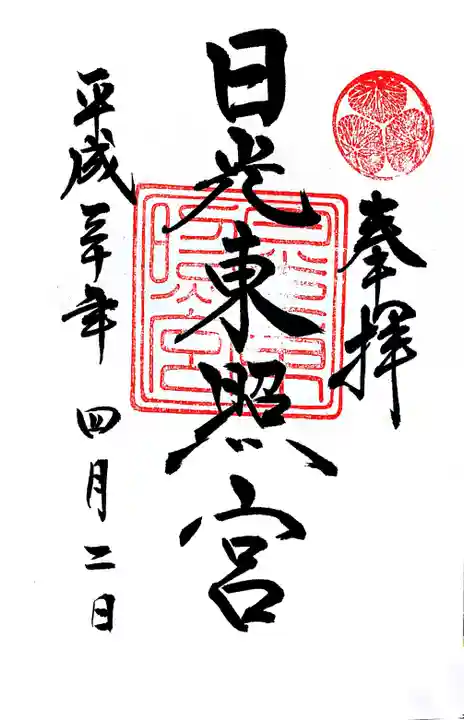 奉拝
日光東照宮
平成三十年 四月二日